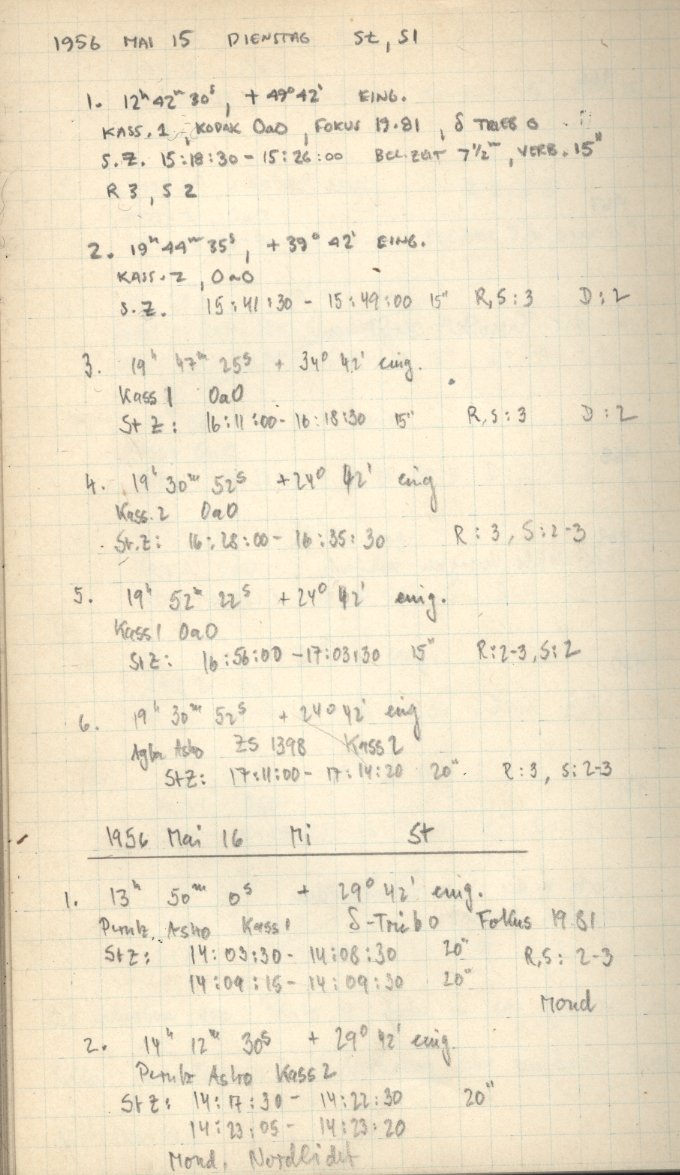 1956 MAI 15 DIENSTAG St, Sl
1. 12ʰ 42ᵐ 30ˢ, + 49° 42' EING.
KASS. 1, KODAK OaO, FOKUS 19.81, δ TRIEB 0
S.Z. 15:18:30 - 15:26:00 BEL.ZEIT 7½ᵐ, VERB. 15"
R 3, S 2
2. 19ʰ 44ᵐ 35ˢ, + 39° 42' EING.
KASS. 2, OaO
S.Z. 15:41:30 - 15:49:00 15" R,S:3 D:2
3. 19ʰ 47ᵐ 25ˢ + 34° 42' eing.
Kass 1 OaO
StZ: 16:11:00 - 16:18:30 15" R,S:3 D:2
4. 19ʰ 30ᵐ 52ˢ + 24° 42' eing
Kass. 2 OaO
St.Z: 16:28:00 - 16:35:30 R:3, S:2-3
5. 19ʰ 52ᵐ 22ˢ + 24° 42' einig.
Kass 1 OaO
StZ: 16:56:00 - 17:03:30 15" R:2-3, S:2
6. 19ʰ 30ᵐ 52ˢ + 24° 42' eing
Agfa Astro ZS 1398 Kass 2
StZ: 17:11:00 - 17:14:20 20". R:3, S:2-3
1956 Mai 16 Mi St
1. 13ʰ 50ᵐ 0ˢ + 29° 42' einig.
Perutz Astro Kass 1 δ-Trieb 0 Fokus 19.81
StZ: 14:03:30 - 14:08:30 20" R,S: 2-3
14:09:15 - 14:09:30 20"
Mond
2. 14ʰ 12ᵐ 30ˢ + 29° 42' einig.
Perutz Astro Kass 2
StZ: 14:17:30 - 14:22:30 20"
14:23:05 - 14:23:20
Mond, Nordlicht